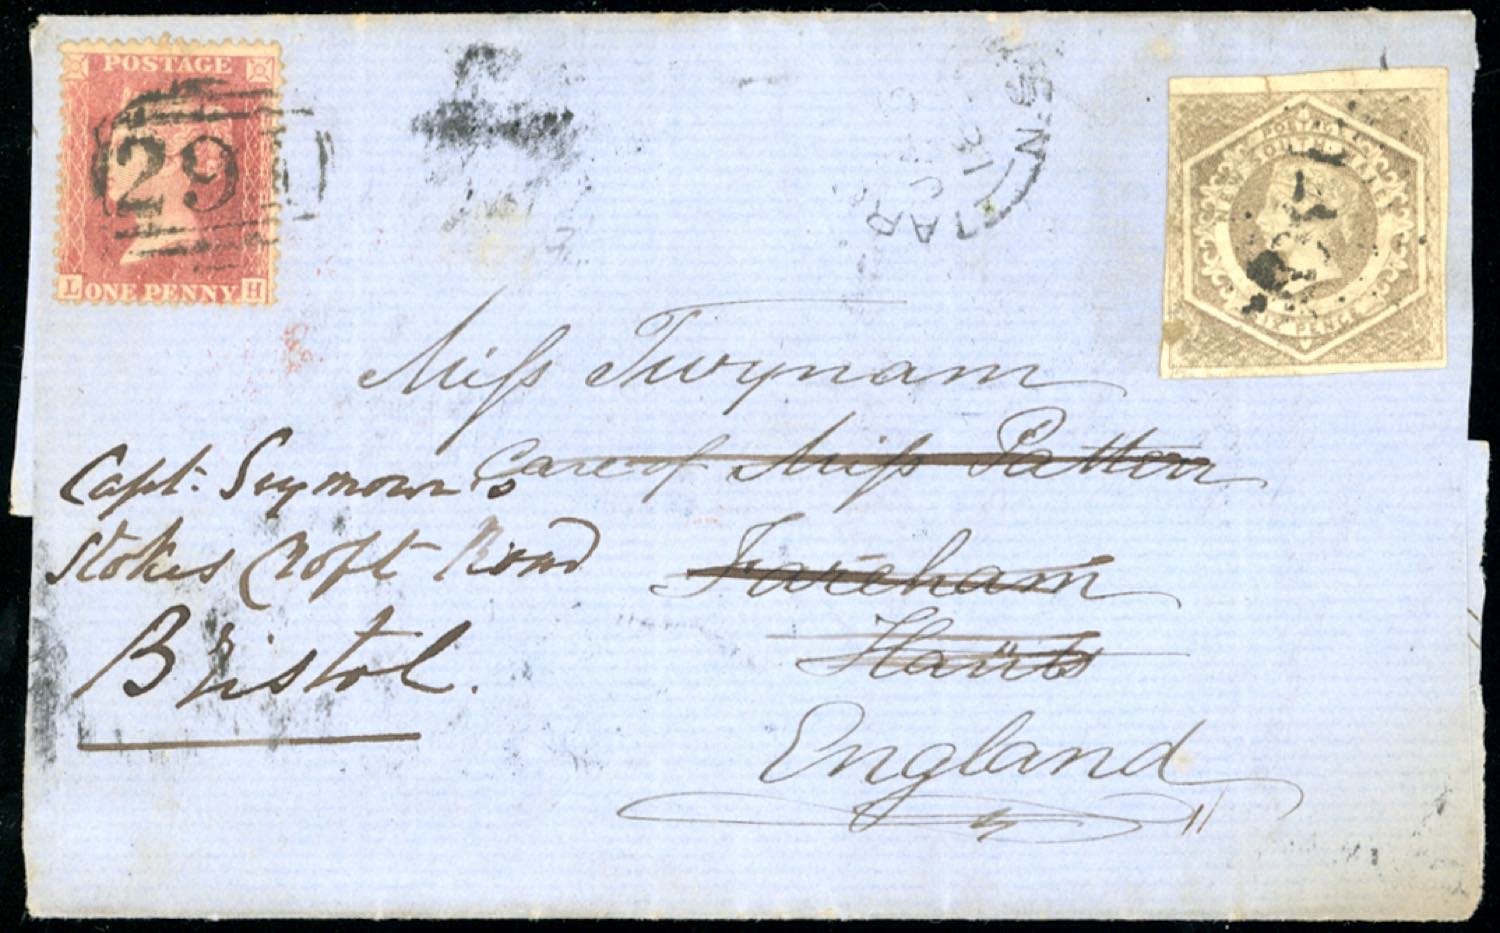 POSTAGE
29
L ONE PENNY H
POSTAGE
NEW SOUTH WALES
SIX PENCE
MAR
Miss Twynam
Care of Miss Patten
Fareham
Hants
England
Capt. Seymour
Stokes Croft Road
Bristol.